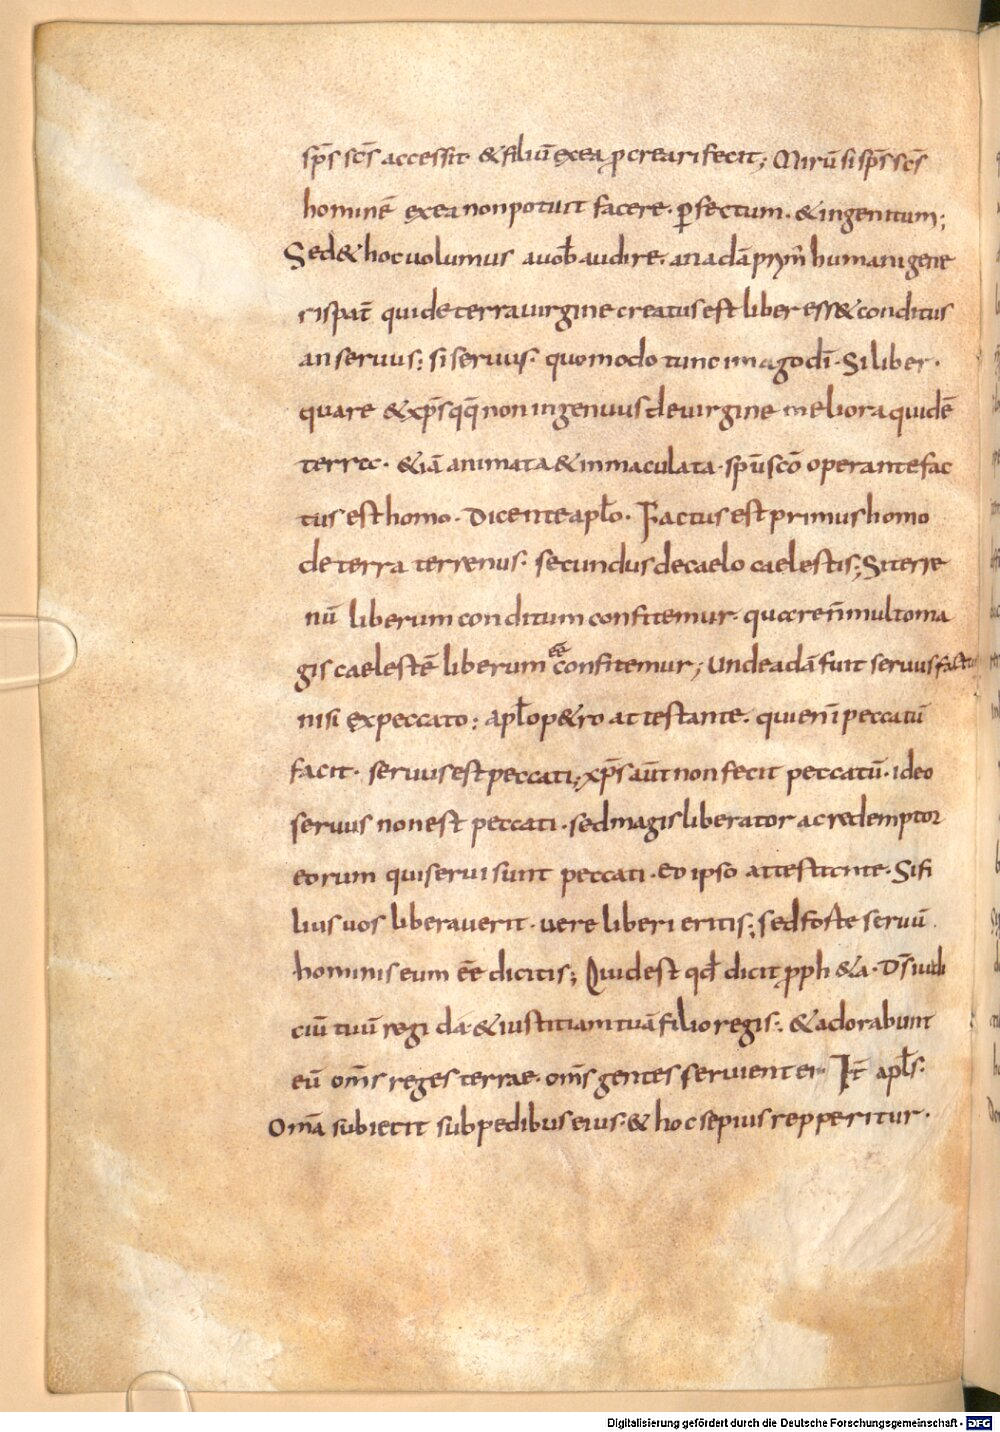 sp̄s sc̄s accessit· & filiū ęx ea procreari fecit; Mirū si sp̄s sc̄s
hominē ęx ea non potuit facere· perfectum· & ingenitum;
Sed & hoc uolumus a uob̄ audire· an adā prym̄ humani gene
ris pat̄ qui de terra uirgine creatus est liber ess& conditus
an seruus; si seruus· quomodo tunc imago dī· Si liber·
quare & xp̄s qq̄ non ingenuus de uirgine meliora quidē
terrec· & iā animata & inmaculata· spū scō operante fac
tus est homo· Dicente apl̄o· Factus est primus homo
de terra terrenus· secundus de caelo caelestis; Si terre
nū liberum conditum confitemur· quccren̄ multo ma
gis caelestē liberum ēē confitemur; Unde adā fuit seruus factus
nisi ęx peccato; apl̄o p&ro attestante· qui enī peccatū
facit· seruus est peccati; xp̄s aūt non fecit peccatū· ideo
seruus non est peccati· sed magis liberator ac redemptor
eorum qui serui sunt peccati· eo ipso attestcnte· Si fi
lius uos liberauerit· uere liberi eritis; sed foste seruū
hominis eum ēē dicitis; Quid est qd̄ dicit pro ph&a· Ds̄ iudi
ciū tuū regi da· & iustitiam tuā filio regis; & adorabunt
eū om̄s reges terrae· om̄s gentes seruient ei·· It̄ apl̄s·
Om̄a subiecit sub pedibus eius· & hoc sepius repperitur·
Digitalisierung gefördert durch die Deutsche Forschungsgemeinschaft - DFG